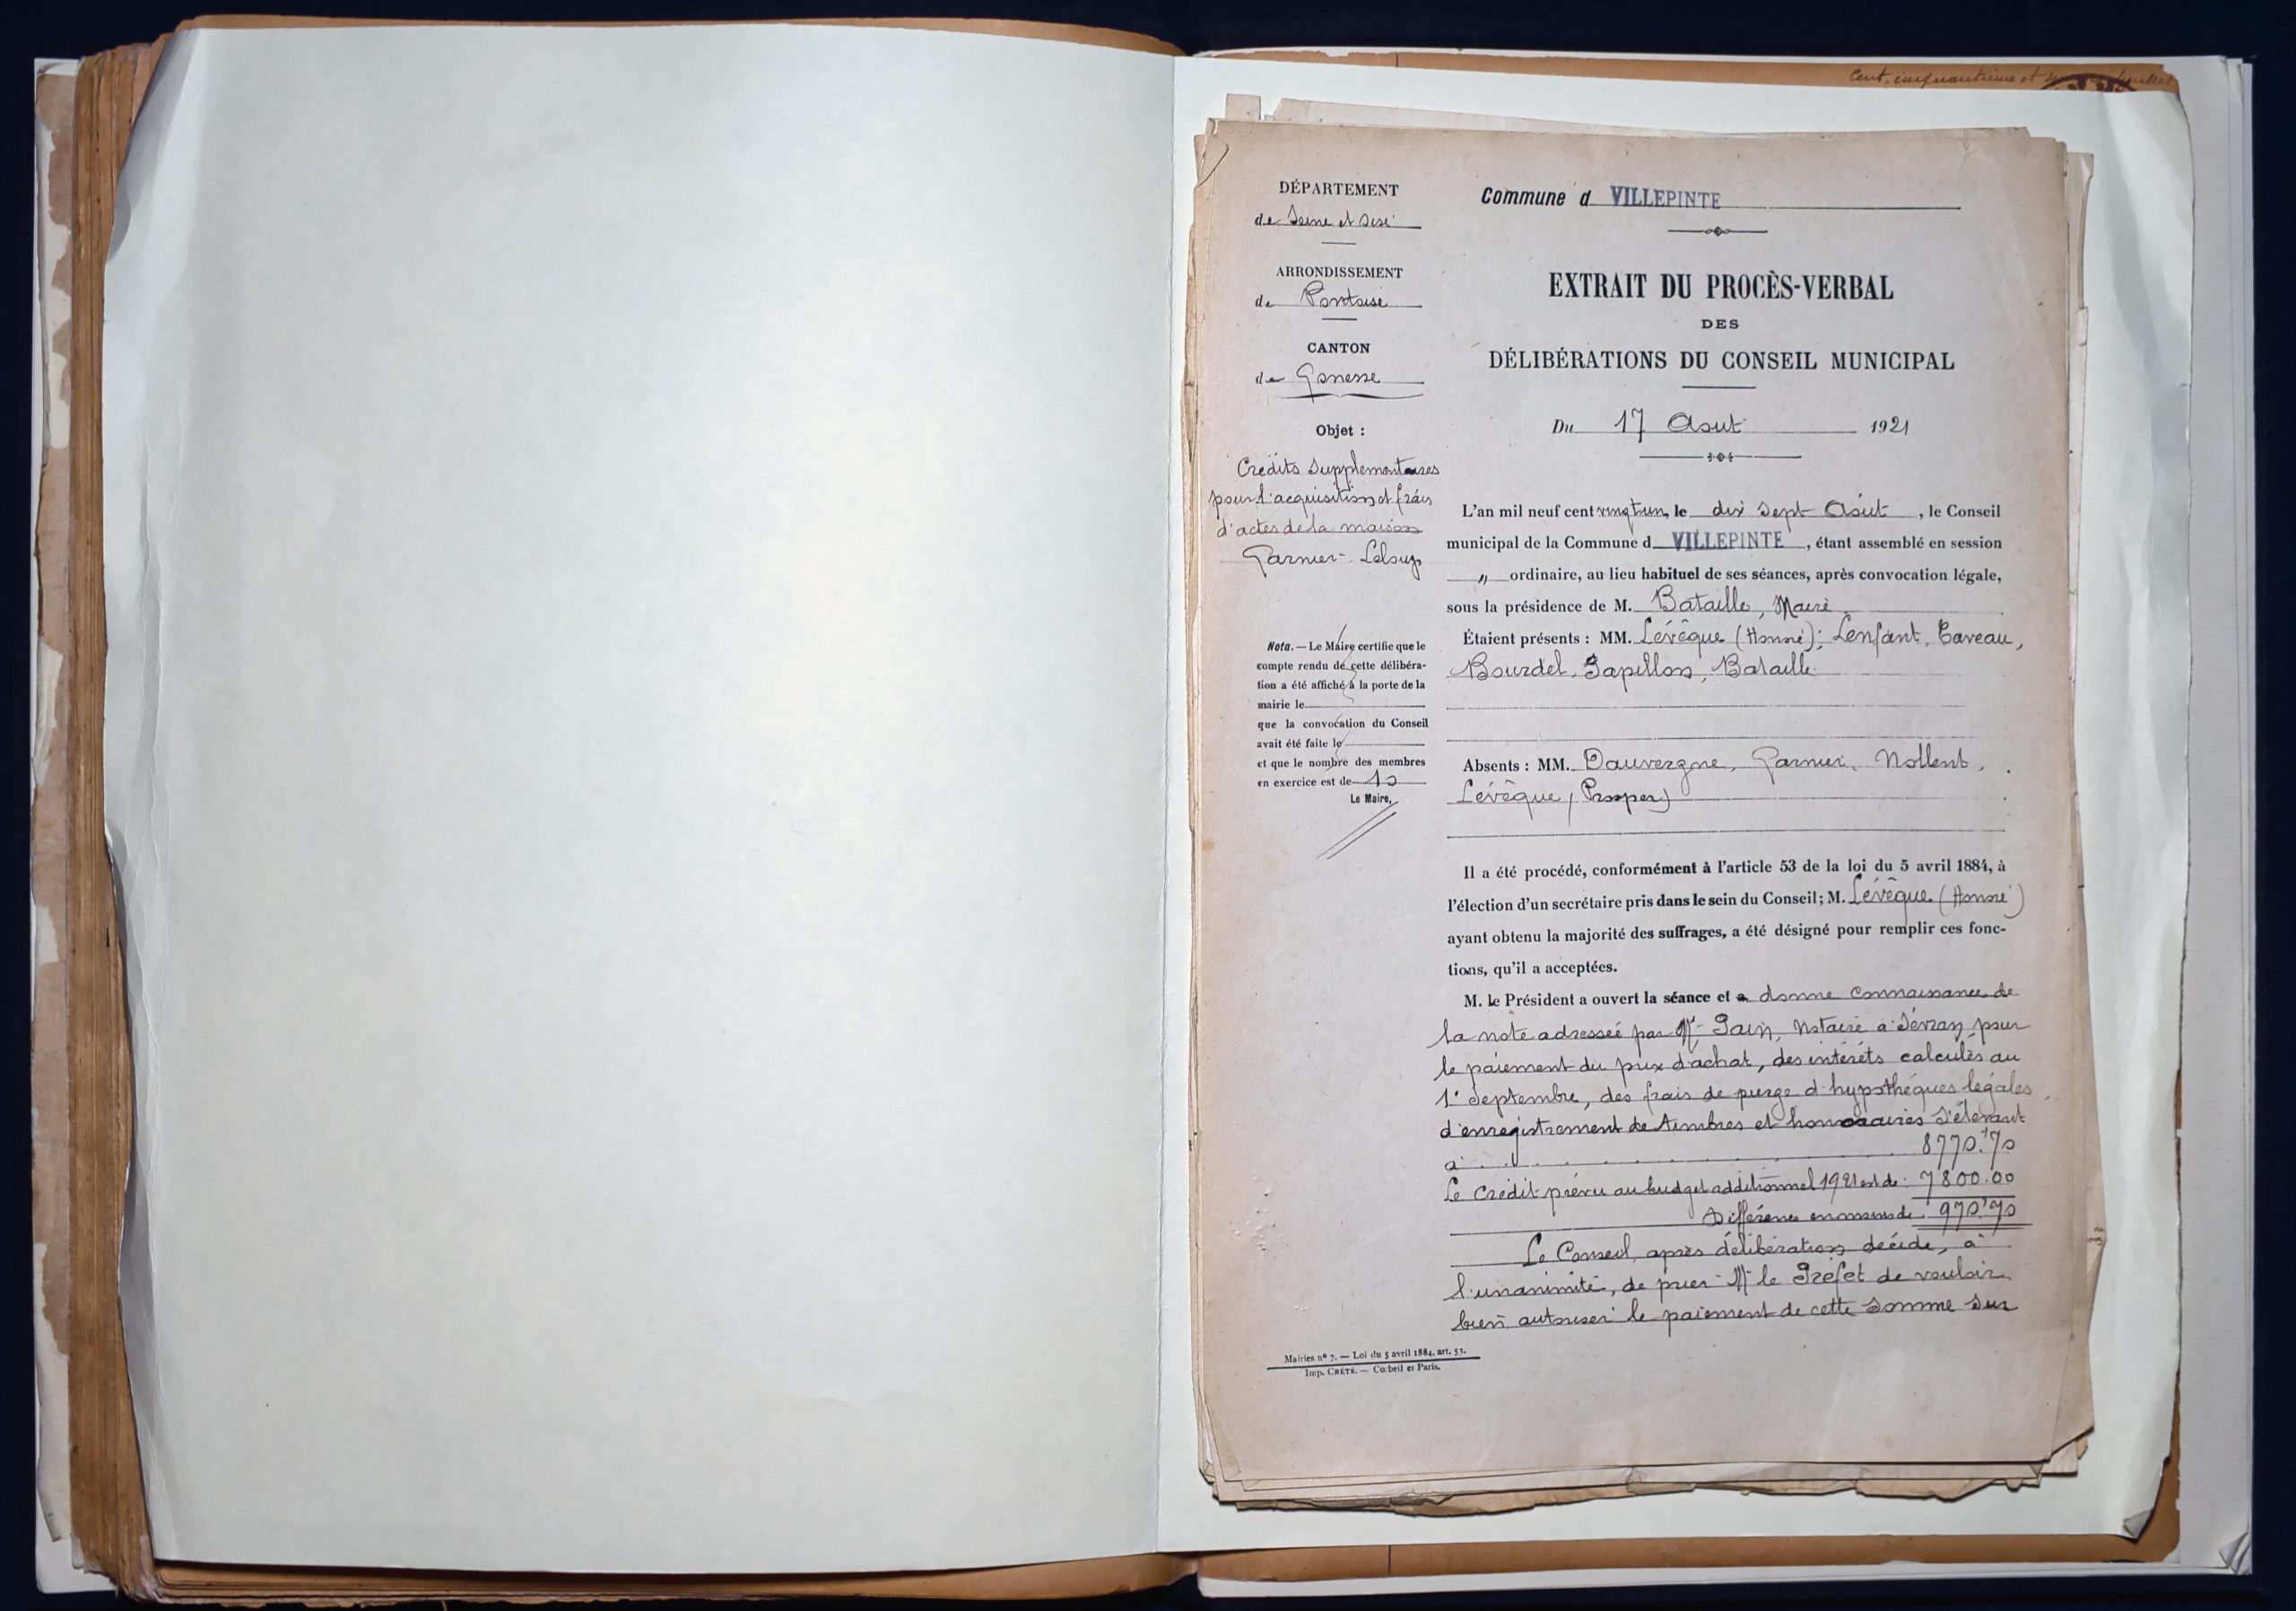 Cent cinquantième et feuillet
DÉPARTEMENT
de Seine et Oise
ARRONDISSEMENT
de Pontoise
CANTON
de Gonesse
Objet :
Crédits supplémentaires
pour l'acquisition et frais
d'actes de la maison
Garnier-Leloup
Nota. — Le Maire certifie que le
compte rendu de cette délibéra-
tion a été affiché à la porte de la
mairie le
que la convocation du Conseil
avait été faite le
et que le nombre des membres
en exercice est de 10
Le Maire,
Commune d VILLEPINTE
EXTRAIT DU PROCÈS-VERBAL
DES
DÉLIBÉRATIONS DU CONSEIL MUNICIPAL
Du 17 Aout 1921
L'an mil neuf cent vingt un, le dix sept Août, le Conseil
municipal de la Commune d VILLEPINTE, étant assemblé en session
" ordinaire, au lieu habituel de ses séances, après convocation légale,
sous la présidence de M. Bataille, Maire
Étaient présents : MM. Lévêque (Honoré); Lenfant, Caveau,
Bourdel, Papillon, Bataille
Absents : MM. Dauvergne, Garnier, Nollent,
Lévêque (Prosper)
Il a été procédé, conformément à l'article 53 de la loi du 5 avril 1884, à
l'élection d'un secrétaire pris dans le sein du Conseil; M. Lévêque (Honoré)
ayant obtenu la majorité des suffrages, a été désigné pour remplir ces fonc-
tions, qu'il a acceptées.
M. le Président a ouvert la séance et a donne connaissance de
la note adressée par Me Pain, Notaire à Sévran, pour
le paiement du prix d'achat, des intérêts calculés au
1er Septembre, des frais de purge d'hypothéques légales,
d'enregistrement de timbres et honoraires s'élevant
à 8770f70
Le crédit prévu au budget additionnel 1921 est de : 7800.00
Différence en moins de 970f70
Le Conseil, après délibération décide, à
l'unanimité, de prier Mr le Préfet de vouloir
bien autoriser le paiement de cette somme sur
Mairies nº 7. — Loi du 5 avril 1884, art. 53.
Imp. CRÉTÉ. — Corbeil et Paris.